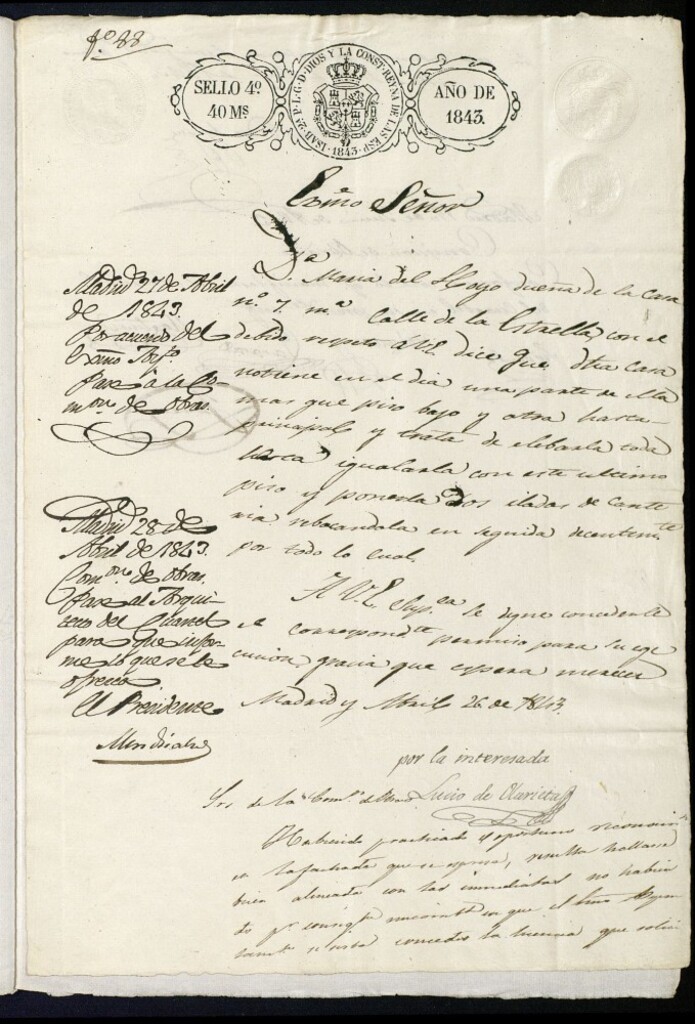 fº 88
SELLO 4º
40 Mˢ
ISAB. 2ª P. L. G. D. DIOS Y LA CONST. REYNA DE LAS ESP.
1843
AÑO DE
1843.
Exmo Señor
Dª Maria del Hoyo dueña de la Casa
nº 7 mª Calle de la Estrella, con el
debido respeto á V.E. dice que dha Casa
no tiene en el dia una parte de ella
mas que piso bajo y otra hasta
principal y trata de elebarla toda
hasta igualarla con este ultimo
piso y ponerla dos iladas de cante
ria rebocandola en seguida decentemᵗᵉ
por todo lo cual.
A V.E. Supᶜᵃ se digne concederle
el correspondᵗᵉ permiso para su eje
cucion, gracia que espera merecer
Madrid y Abril 26 de 1843.
por la interesada
Lucio de Olarieta
Madrid 27 de Abril
de 1843.
Por acuerdo del
Exmo
Pase á la Co-
monˢ de Obras.
Madrid 28 de
Abril de 1843.
Comºⁿ de obras.
Pase al Arqui-
tecto del Cuartel
para que infor-
me lo que se le
ofrezca
El Presidente
Sres de la Comⁿ de Obras
Habiendo practicado el oportuno reconocimᵗᵒ
en la fachada que se expresa, resulta hallarse
bien alineada con las inmediatas no habien
do pʳ consigᵗᵉ inconvenᵗᵉ en que el Exmo Ayun
tamᵗᵒ se sirva conceder la licencia que solici